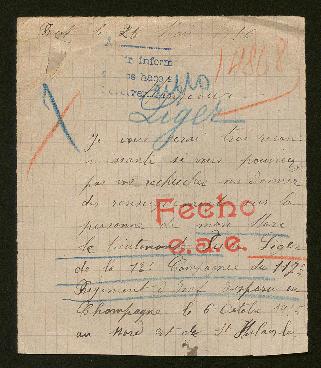 le 24
14868
Liger
Monsieur
Je vous serai très recon
naissante si vous pouviez
pas vos recherches me donner
des renseignements sur la
personne de mon Mari
Fecho
le lieutenant Liger
e.a.e.
de la 12e Compagnie du 117e
Régiment d'Inf disparu en
Champagne le 6 Octobre 1915
au Nord est de St Hilaire